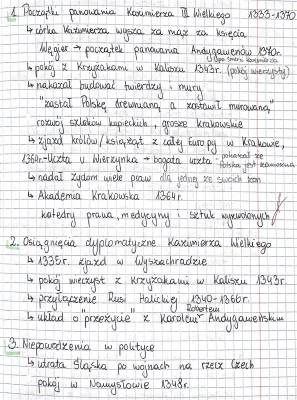 1. Początki panowania Kazimierza III Wielkiego 1333-1370
↳ córka Kazimierza wysza za mąż za księcia
Węgier → początek panowania Andygawenów 1370r.
po śmierci Kazimierza
↳ pokój z Krzyżakami w Kaliszu 1343r. (pokój wieczysty)
↳ nakazał budować twierdzy i mury
"zastał Polskę drewnianą, a zostawił murowaną"
rozwój szlaków kupieckich, grosze krakowskie
↳ zjazd królów/książąt z całej Europy w Krakowie,
1364r-Uczta u Wierzynka → bogata uczta - pokazał że
Polska jest zamożna
↳ nadał żydom wiele praw dla jednej ze swoich żon
↳ Akademia Krakowska 1364r.
katedry prawa, medycyny i sztuk wyzwolonych
2. Osiągnięcia dyplomatyczne Kazimierza Wielkiego
↳ 1335r. zjazd w Wyszechradzie
↳ pokój wieczyst z Krzyżakami w Kaliszu 1343r.
↳ przyłączenie Rusi Halickiej 1340-1366r.
Robertem
↳ układ o "przeżycie" z Karolem Andygaweńskim
3. Niepowodzenia w polityce
↳ utrata Śląska po wojnach na rzecz Czech
pokój w Namysłowie 1348r.